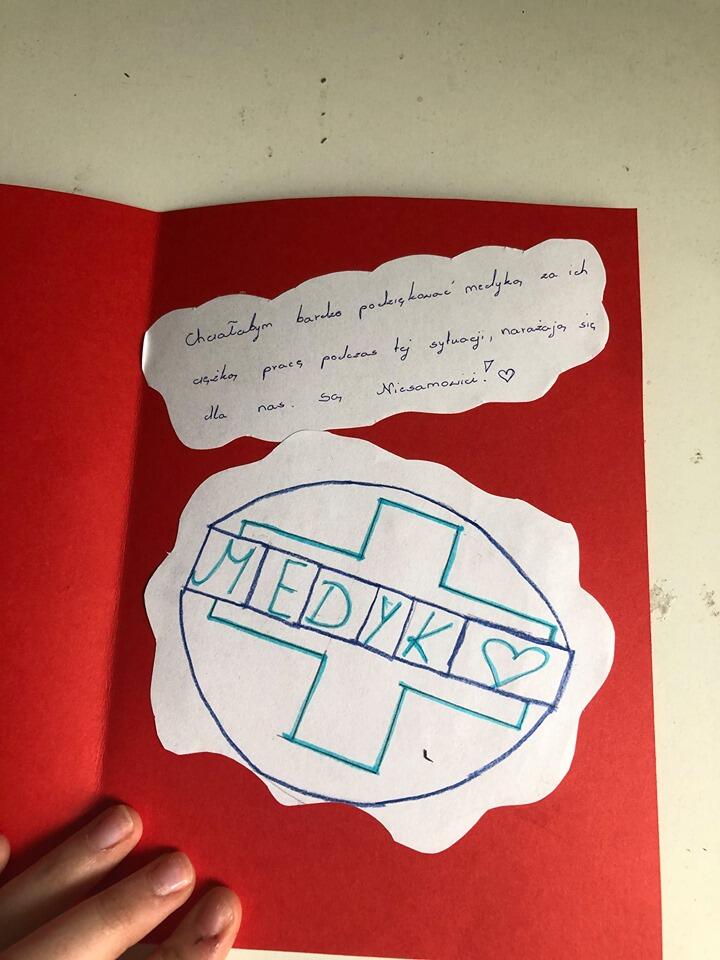 Chciałabym bardzo podziękować medyką za ich
ciężką pracę podczas tej sytuacji, narażają się
dla nas. Są Niesamowici! ♡
MEDYK ♡